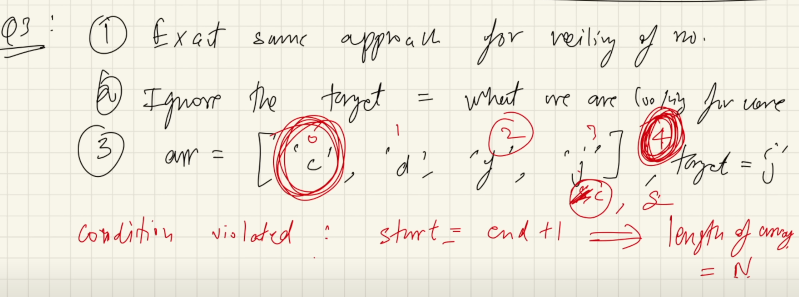 Q3 : ① Exact same approach for ceiling of no.
② Ignore the target = what we are looking for
0 1 2 3 4
③ arr = ['c', 'd', 'f', 'j'] , target = 'j'
'c',
condition violated : start = end + 1 ⟹ length of array
= N